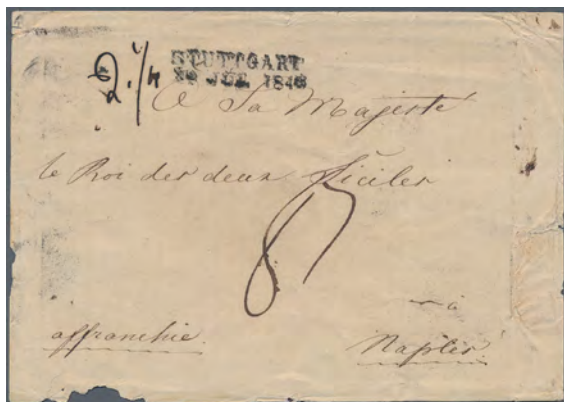 STUTTGART
JUL 1846
A Sa Majesté
le Roi des deux Siciles
à
affranchie. Naples